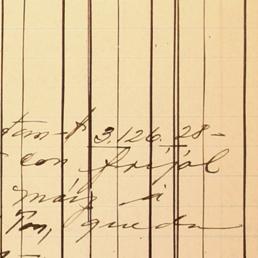 $3.126.28-
con frijol
maiz á
queda